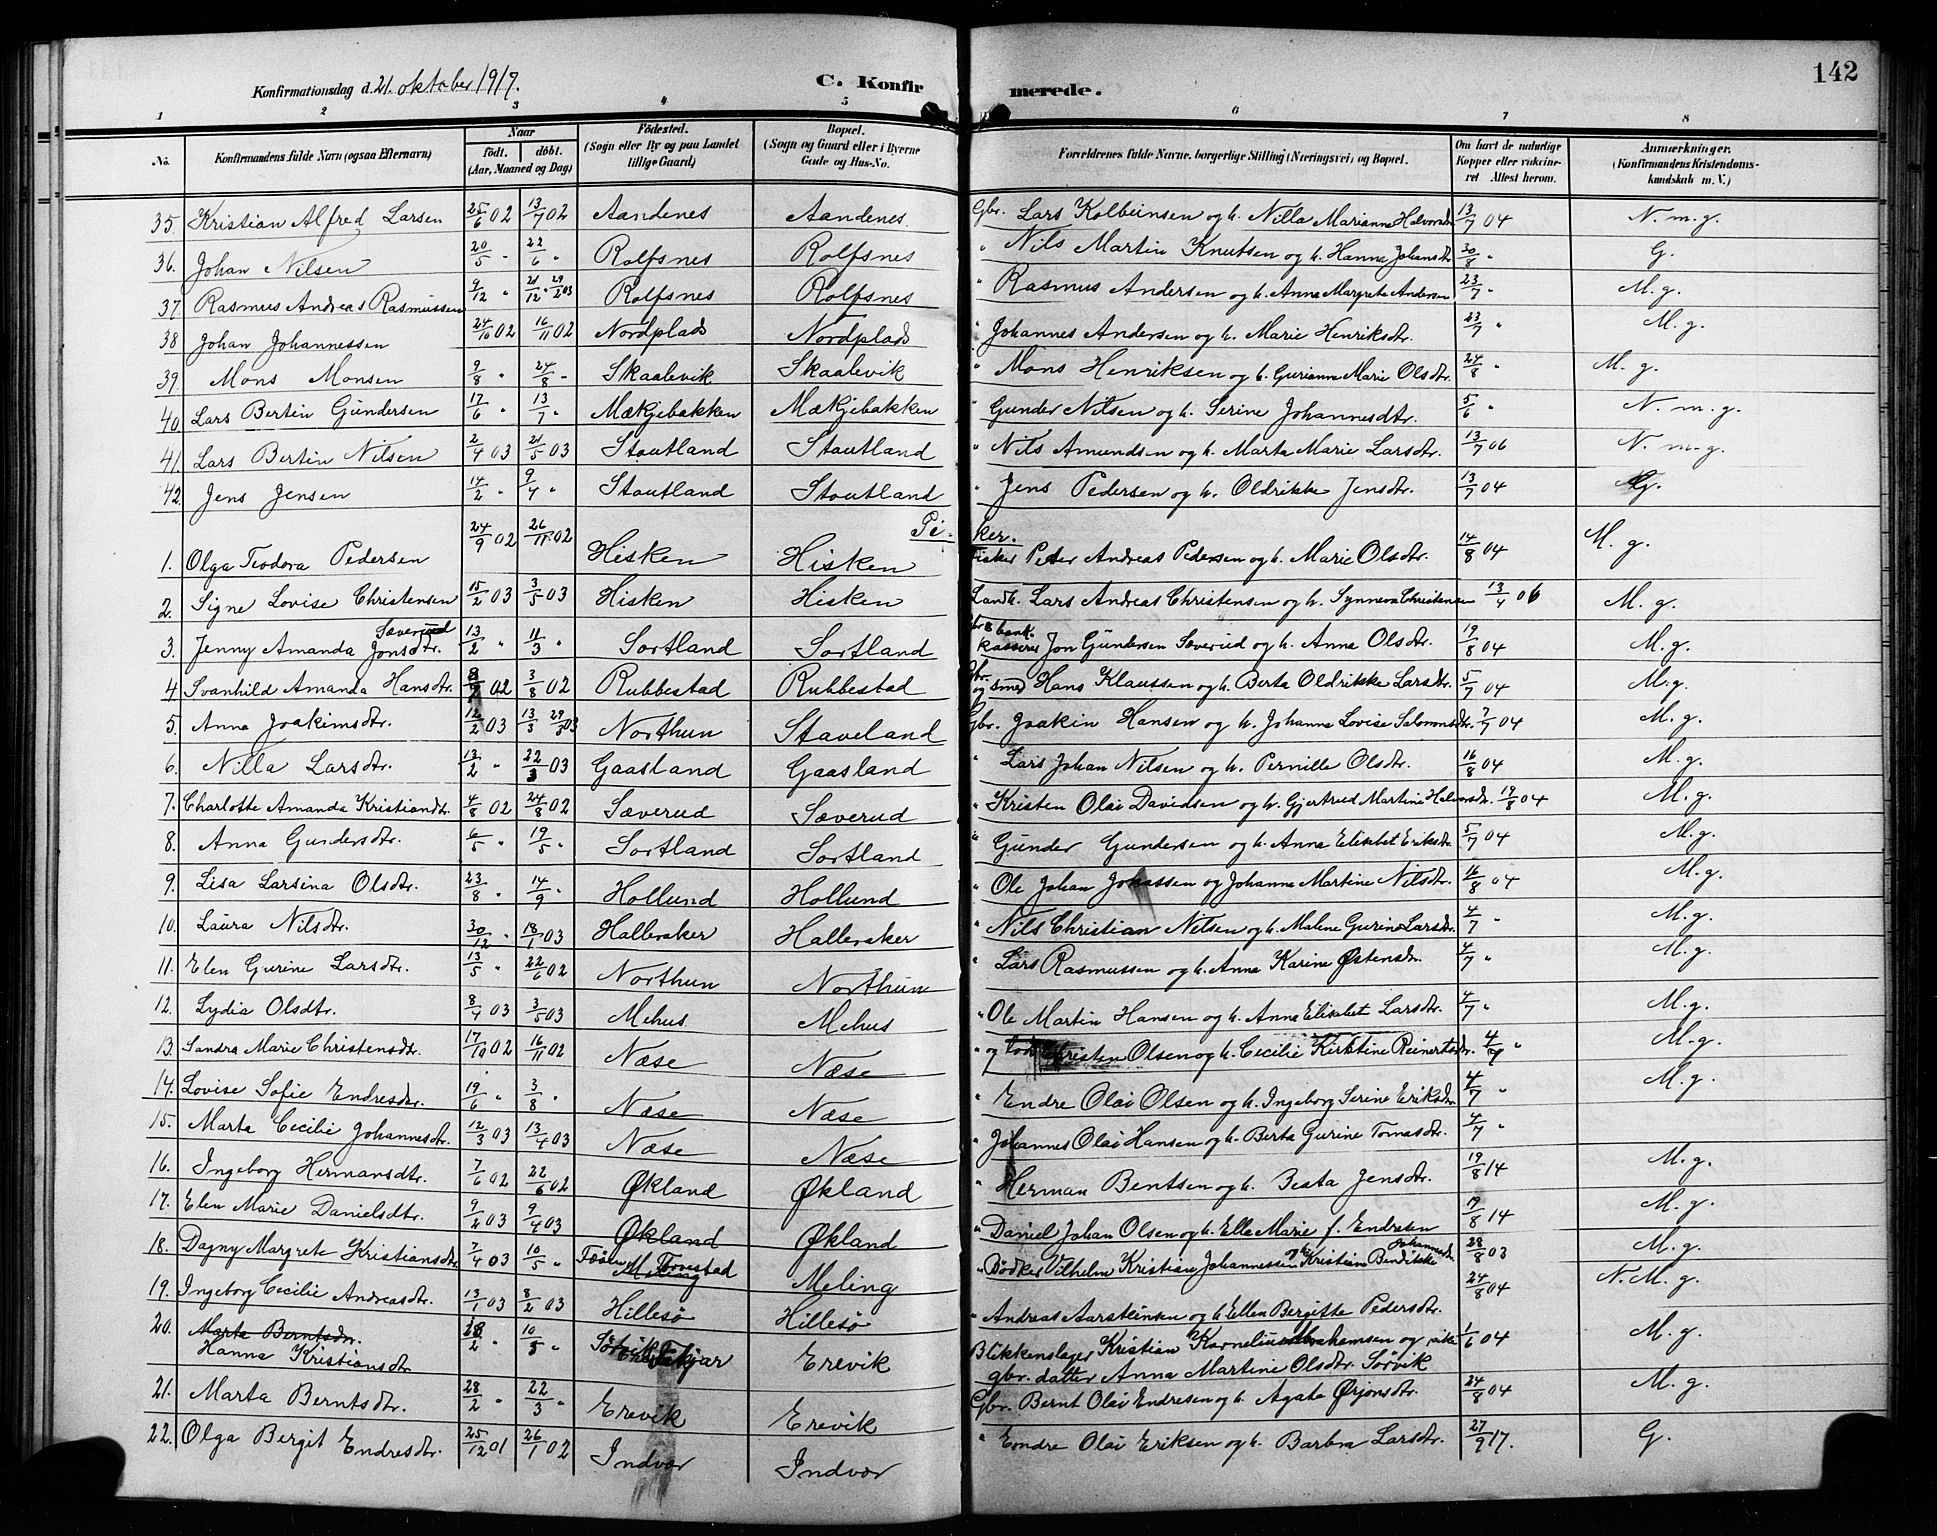 142
Konfirmationsdag d. 21. oktober 1917. C. Konfirmerede.
1 2 3 4 5 6 7 8
No. Konfirmandens fulde Navn (ogsaa Efternavn) Naar født. døbt. (Aar, Maaned og Dag) Fødested. (Sogn eller By og paa Landet tillige Gaard) Bopæl. (Sogn og Gaard eller i Byerne Gade og Hus-No. Forældrenes fulde Navne, borgerlige Stilling (Næringsvei) og Bopæl. Om havt de naturlige Kopper eller vakcineret Attest herom. Anmærkninger. (Konfirmandens Kristendomskundskab m. V.)
35. Kristian Alfred Larsen 25/6 02 13/7 02 Aandenes Aandenes Gbr. Lars Kolbeinsen og h. Nilla Marianne Halvorsdtr 13/7 04 N. m. g.
36. Johan Nilsen 20/5 " 22/6 " Rolfsnes Rolfsnes " Nils Martin Knutsen og h. Hanna Johansdtr 30/8 " G.
37. Rasmus Andreas Rasmussen 9/12 " 21/12 " 29/2 03 Rolfsnes Rolfsnes " Rasmus Andersen og h. Anna Margrete Andersen 23/7 " M. g.
38 Johan Johannessen 24/10 02 16/11 02 Nordplads Nordplads " Johannes Andersen og h. Marie Henriksdtr. 23/7 " M. g.
39. Mons Monsen 9/8 " 24/8 " Skaalevik Skaalevik " Mons Henriksen og h. Gurianna Marie Olsdtr. 24/8 " M. g.
40. Lars Bertin Gundersen 17/6 " 13/7 " Mækjebakken Mækjebakken " Gunder Nilsen og h. Serine Johannesdtr. 5/6 " N. m. g.
41. Lars Bertin Nilsen 2/4 03 21/5 03 Stoutland Stoutland " Nils Amundsen og h. Marta Marie Larsdtr. 13/7 06 N. m. g.
42. Jens Jensen 14/2 " 9/4 " Stoutland Stoutland " Jens Pedersen og h. Oldrikke Jensdtr. 13/7 04 G.
Piker.
1. Olga Teodora Pedersen 24/9 02 26/11 02 Hisken Hisken Fisker Peder Andreas Pedersen og h. Marie Olsdtr. 14/8 04 M. g.
2. Signe Lovise Christensen 15/2 03 3/5 03 Hisken Hisken Landh. Lars Andreas Christensen og h. Synneva Christensen 13/4 06 M. g.
3. Jenny Amanda Jonsdtr. Sæverud 13/2 " 11/3 " Sortland Sortland Gbr & bankkasserer Jon Gundersen Sæverud og h. Anna Olsdtr. 19/8 04 M. g.
4 Svanhild Amanda Hansdtr. 8/7 02 3/8 02 Rubbestad Rubbestad Gbr. og smed Hans Klaussen og h. Berta Oldrikke Larsdtr. 5/7 04 M. g.
5. Anna Joakimsdtr. 12/2 03 13/3 29/3 03 Northun Staveland Gbr. Joakin Hansen og h. Johanna Lovise Salomonsdtr. 7/7 04 M. g.
6. Nilla Larsdtr. 13/2 " 22/3 03 Gaasland Gaasland " Lars Johan Nilsen og h. Pernille Olsdtr. 16/8 04 M. g.
7. Charlotte Amanda Kristiandtr. 4/8 02 24/8 02 Sæverud Sæverud " Kristen Olai Davidsen og h. Gjertrud Martine Halvorsdtr. 19/8 04 M. g.
8. Anna Gundersdtr. 6/5 " 19/5 " Sortland Sortland " Gunder Gundersen og h. Anna Elisbet Eriksdtr. 5/7 04 M. g.
9. Lisa Larsina Olsdtr. 23/8 " 14/9 " Hollund Hollund " Ole Johan Johassen og Johanna Martine Nilsdtr. 16/8 04 M. g.
10. Laura Nilsdtr. 30/12 " 18/1 03 Halleraker Halleraker " Nils Christian Nilsen og h. Malene Gurine Larsdtr. 4/7 " M. g.
11. Elen Gurine Larsdtr. 13/5 " 22/6 02 Northun Northun " Lars Rasmussen og h. Anna Karine Østensdtr. 4/7 " M. g.
12. Lydia Olsdtr. 8/4 03 3/5 03 Mehus Mehus " Ole Martin Hansen og h. Anna Elisbet Larsdtr. 4/7 " M. g.
13. Sandra Marie Christensdtr. 17/10 02 16/11 02 Næse Næse " og Christen Olsen og h. Cecilie Kirstine Reinertsdtr. 4/7 " M. g.
14. Lovise Sofie Endresdtr. 19/6 " 3/8 " Næse Næse " Endre Olai Olsen og h. Ingeborg Serine Eriksdtr 4/7 " M. g.
15. Marta Cecilie Johannesdtr. 12/3 03 13/4 03 Næse Næse " Johannes Olai Hansen og h. Berta Gurine Tomasdtr. 4/7 "
16. Ingeborg Hermansdtr. 7/6 02 22/6 02 Økland Økland " Herman Bentsen og h. Beata Jensdtr. 19/8 14 M. g.
17. Elen Marie Danielsdtr. 9/2 03 9/4 03 Økland Økland " Daniel Johan Olsen og h. Ella Marie f. Endresen 17/8 14 M. g.
18. Dagny Margrete Kristiansdtr 7/4 03 10/5 " Torvestad Meling Meling " Bødker Vilhelm Kristian Johannessen Kristiane Benditske Johannesdtr. 28/8 03 M. g.
19. Ingeborg Cecilie Andreasdtr. 13/1 03 8/2 03 Hillesø Hillesø " Andreas Aarsteinsen og h. Ellen Bergitte Pedersdtr. 24/8 04 N. M. g.
20. Marta Berntsdtr. Hanna Kristiansdtr 28/2 " 10/5 " Erevik Blikkenslager Kristian Kornelius Abrahamsen og pike gbr. datter Anna Martine Olsdtr. Sørvik 1/6 04 M. g.
21. Marta Berntsdtr. 28/2 " 22/3 " Erevik Erevik Gbr. Bernt Olai Endresen og h. Agate Ørjansdtr. 24/8 04 M. g.
22. Olga Bergit Endresdtr. 25/12 01 26/1 02 Indvær Indvær " Endre Olai Eriksen og h. Barbra Larsdtr. 27/9 17. G.